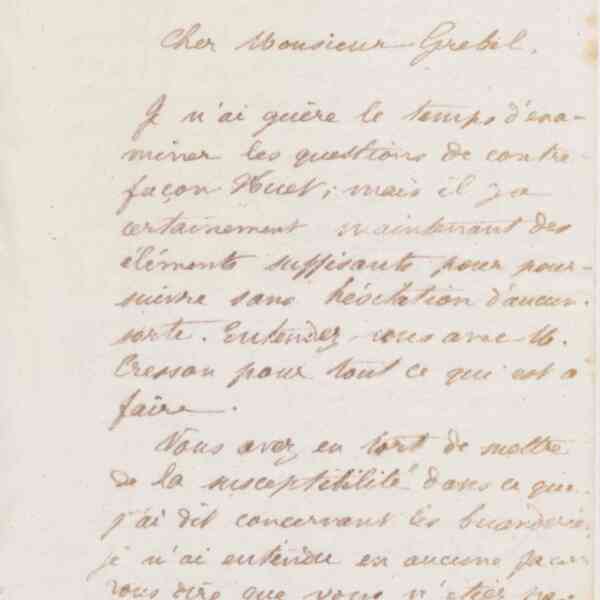 Cher Monsieur Grebel.
Je n'ai guère le temps d'exa-
miner les questions de contre-
façon Huet, mais il y a
certainement maintenant des
éléments suffisants pour pour-
suivre sans hésitation d'aucune
sorte. Entendez vous avec M.
Cresson pour tout ce qui est à
faire.
Vous avez eu tort de mettre
de la susceptibilité dans ce que
j'ai dit concernant les buanderies,
je n'ai entendu en aucune façon
vous dire que vous n'étiez pas